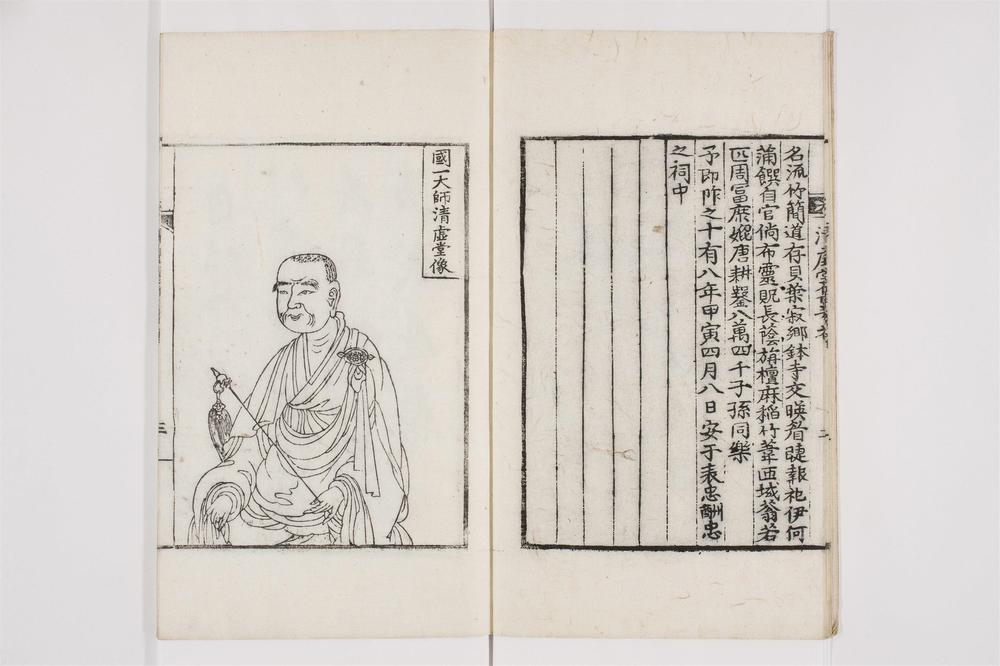 名流竹簡道存貝葉寂鄉鉢寺交暎眷睫報祀伊何
蒲饌自官倘布靈貺長蔭旃檀麻稻竹葦西域蓊若
匹周冨庶媲唐耕鑿八萬四千子孫同樂
予即阼之十有八年甲寅四月八日安于表忠酬忠
之祠中
二
國一大師清虛堂像
三